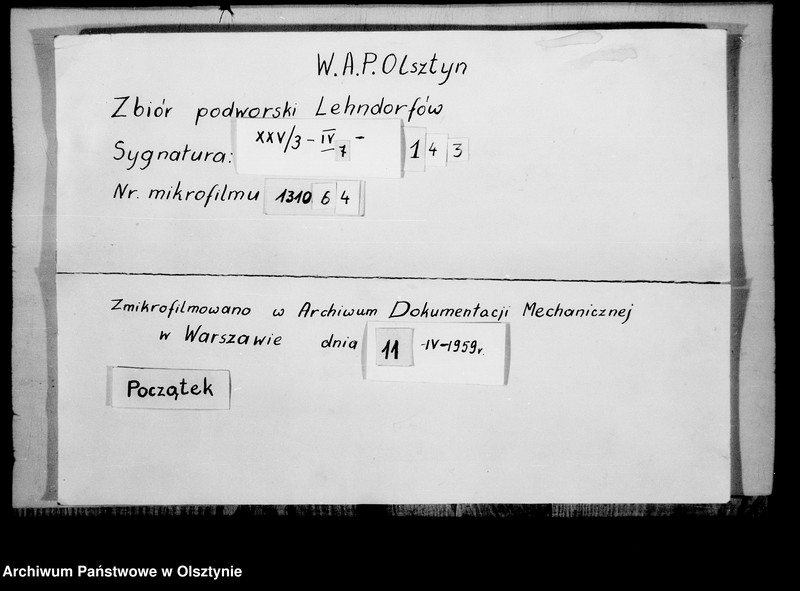 W.A.P. Olsztyn
Zbiór podworski Lehndorfów
Sygnatura: XXV/3 - IV 7 - 143
Nr. mikrofilmu 131064
Zmikrofilmowano w Archiwum Dokumentacji Mechanicznej
w Warszawie dnia 11 -IV-1959r.
Początek
Archiwum Państwowe w Olsztynie